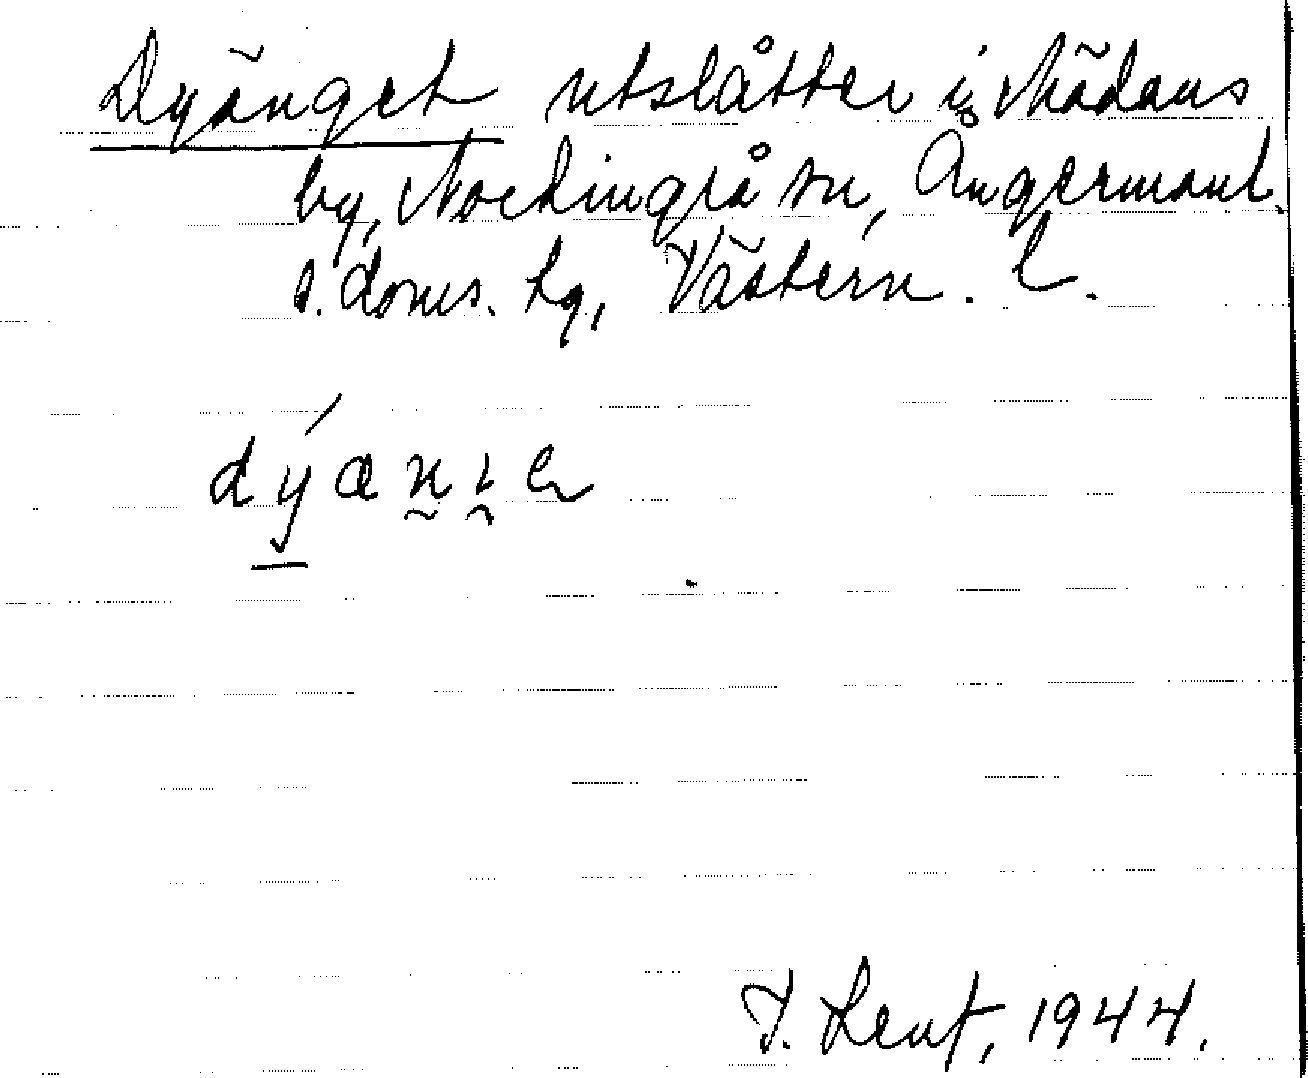 Dyänget utslåtter i Mädans
by, Nordingrå sn, Ångermanl.
s. doms. hg, Västern. l.
dýæn̰ɩ̯
J. Leut, 1944.